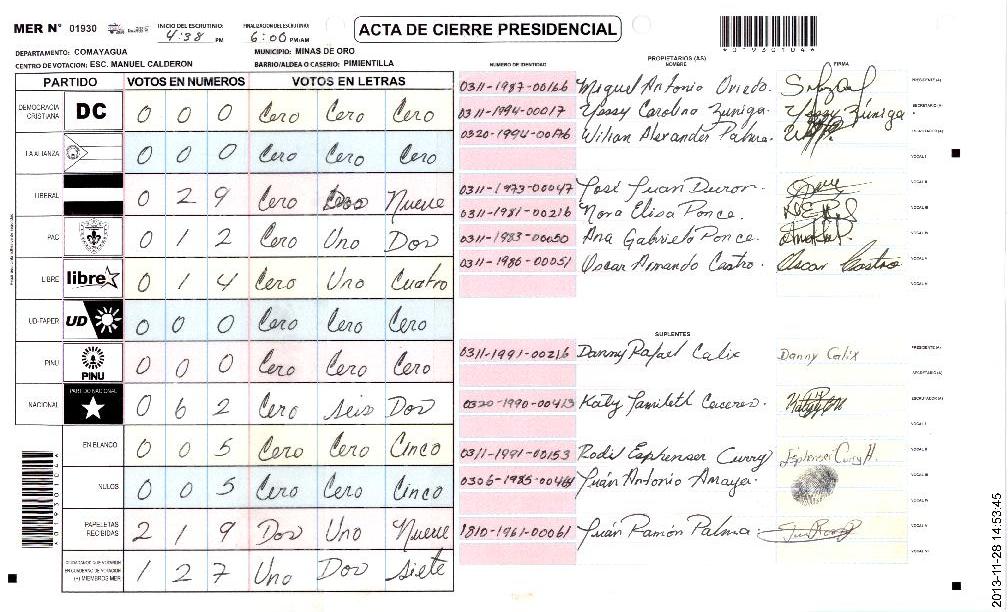 MER N° 01930
INICIO DEL ESCRUTINIO: 4:38 PM
FINALIZACION DEL ESCRUTINIO: 6:00 PM/AM
ACTA DE CIERRE PRESIDENCIAL
DEPARTAMENTO: COMAYAGUA
MUNICIPIO: MINAS DE ORO
CENTRO DE VOTACION: ESC. MANUEL CALDERON
BARRIO/ALDEA O CASERIO: PIMIENTILLA
PARTIDO VOTOS EN NUMEROS VOTOS EN LETRAS
DEMOCRACIA CRISTIANA DC 0 0 0 Cero Cero Cero
LA ALIANZA 0 0 0 Cero Cero Cero
LIBERAL 0 2 9 Cero Dos Nueve
PAC 0 1 2 Cero Uno Dos
LIBRE libre 0 1 4 Cero Uno Cuatro
UD-FAPER UD 0 0 0 Cero Cero Cero
PINU PINU 0 0 0 Cero Cero Cero
NACIONAL PARTIDO NACIONAL 0 6 2 Cero Seis Dos
EN BLANCO 0 0 5 Cero Cero Cinco
NULOS 0 0 5 Cero Cero Cinco
PAPELETAS RECIBIDAS 2 1 9 Dos Uno Nueve
CIUDADANOS QUE VOTARON EN CUADERNO DE VOTACION (+) MIEMBROS MER 1 2 7 Uno Dos Siete
PROPIETARIOS (AS)
NUMERO DE IDENTIDAD NOMBRE FIRMA
0311-1987-00166 Miguel Antonio Oviedo. PRESIDENTE(A)
0311-1994-00017 Yessy Carolina Zuniga. Yessy Zúniga SECRETARIO(A)
Wilian Alexander Palma ESCRUTADOR(A)
VOCAL I
0311-1973-00047 José Juan Duron. VOCAL II
0311-1981-00216 Nora Elisa Ponce. VOCAL III
0311-1983-00050 Ana Gabriela Ponce. VOCAL IV
0311-1986-00051 Oscar Armando Castro. Oscar Castro VOCAL V
VOCAL VI
SUPLENTES
0311-1991-00216 Danny Rafael Calix Danny Calix PRESIDENTE(A)
SECRETARIO(A)
0320-1990-00413 Katy Caceres. ESCRUTADOR(A)
VOCAL I
0311-1991-00153 Rodil Esphenser Curry VOCAL II
Juán Antonio Amaya. VOCAL III
VOCAL IV
1810-1961-00061 Juán Ramón Palma VOCAL V
VOCAL VI
2013-11-28 14:53:45